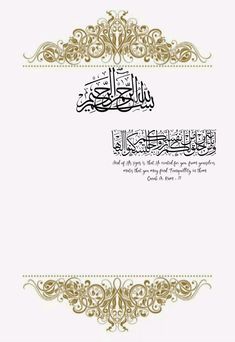 بسم الله الرحمن الرحيم
ومن آياته أن خلق لكم من أنفسكم أزواجا لتسكنوا إليها
And of His signs is that He created for you from yourselves
mates that you may find Tranquillity in them